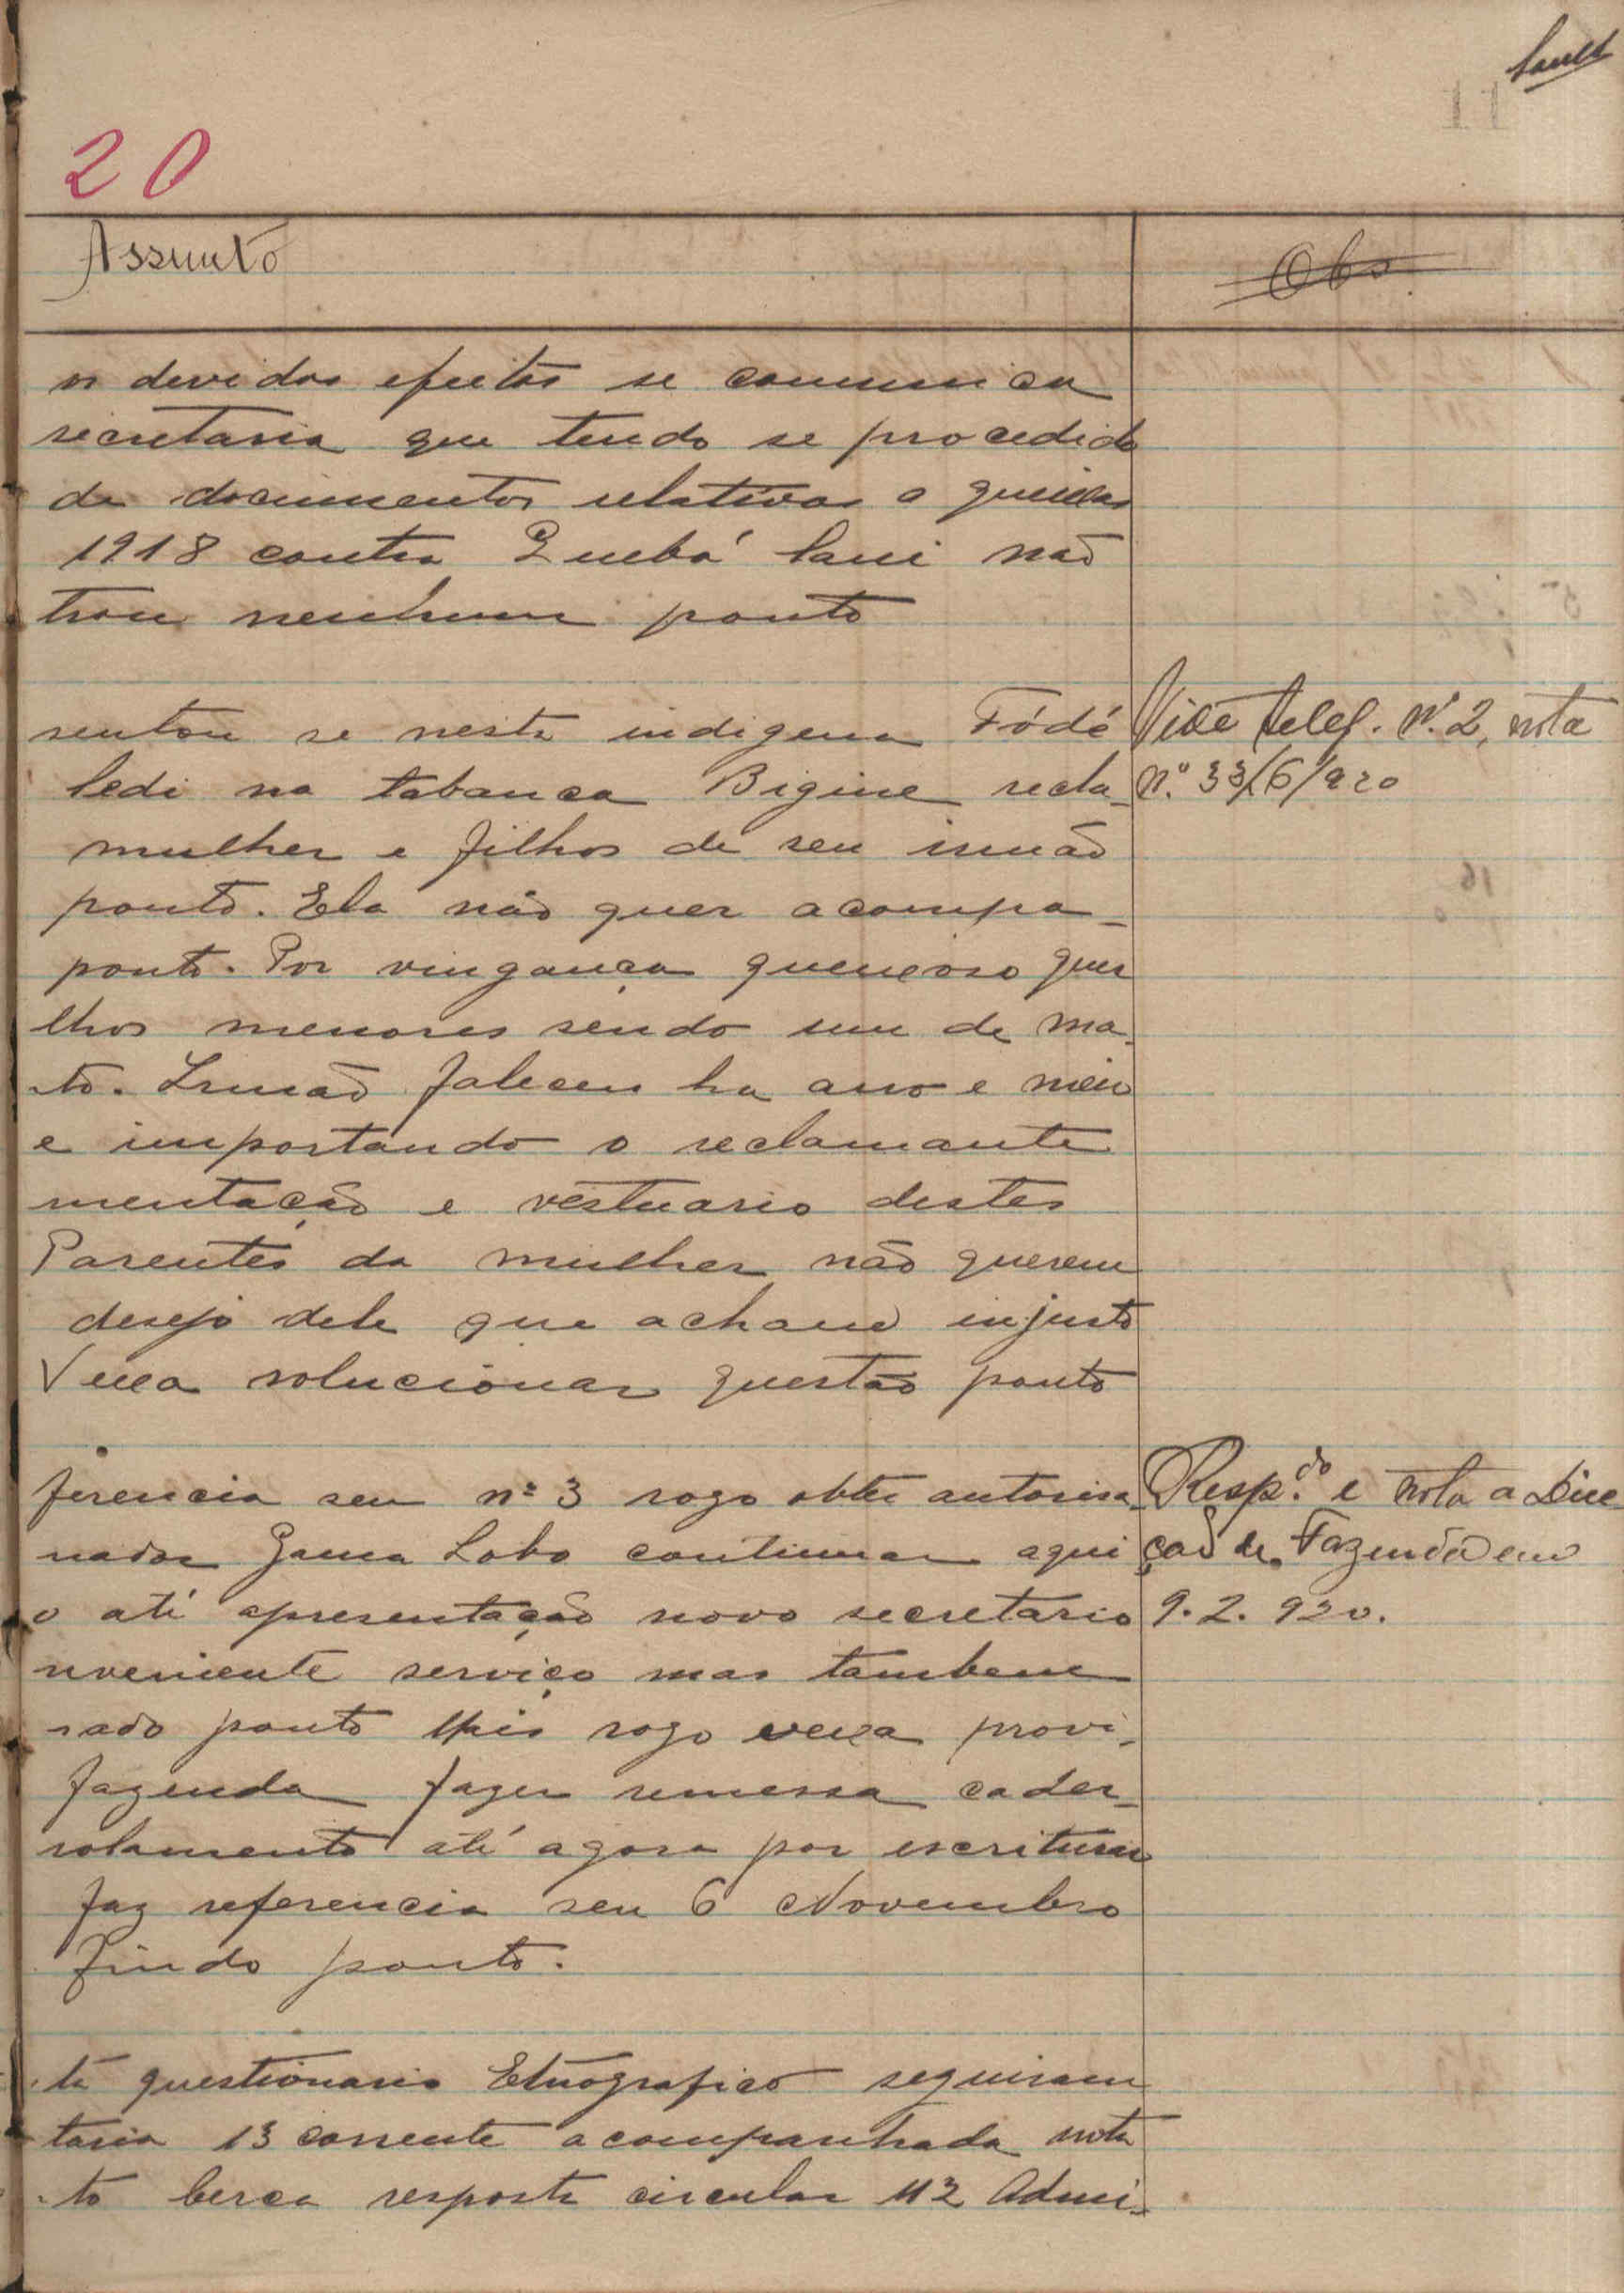 20
Assunto
Obs.
os devidos efeitos se comunica
secretaria que tendo se procedido
de documentos relativos a queixas
1918 contra Quebá não
trou nenhum ponto
sentou se neste indigena Fódé
Vide teleg. Nº 2, nota
ledi na tabanca Bigine recla-
Nº 33/6/920
mulher e filhos de seu irmão
ponto. Ela não quer acompa-
ponto. Por vingança quer
lhos menores sendo um de ma-
to. Irmão faleceu ha ano e meio
e importando o reclamante
mentação e vestuario destes
Parentes da mulher não querem
desejo dele que acham injusto
Vexa solucionar questão ponto
ferencia seu nº 3 rogo obter autorisa-
Resp.do e nota a Dire
nador Gama Lobo continuar aqui
ção de Fazenda em
o até apresentação novo secretario
9.2.920.
nveniente serviço mas tambem
rado ponto rogo vexa provi-
fazenda fazer remessa cader-
rolamento até agora por escriturar
faz referencia seu 6 Novembro
findo ponto.
ta questionario Etnografico seguiram
taria 13 corrente acompanhada nota
to resposta circular 112 Admi-